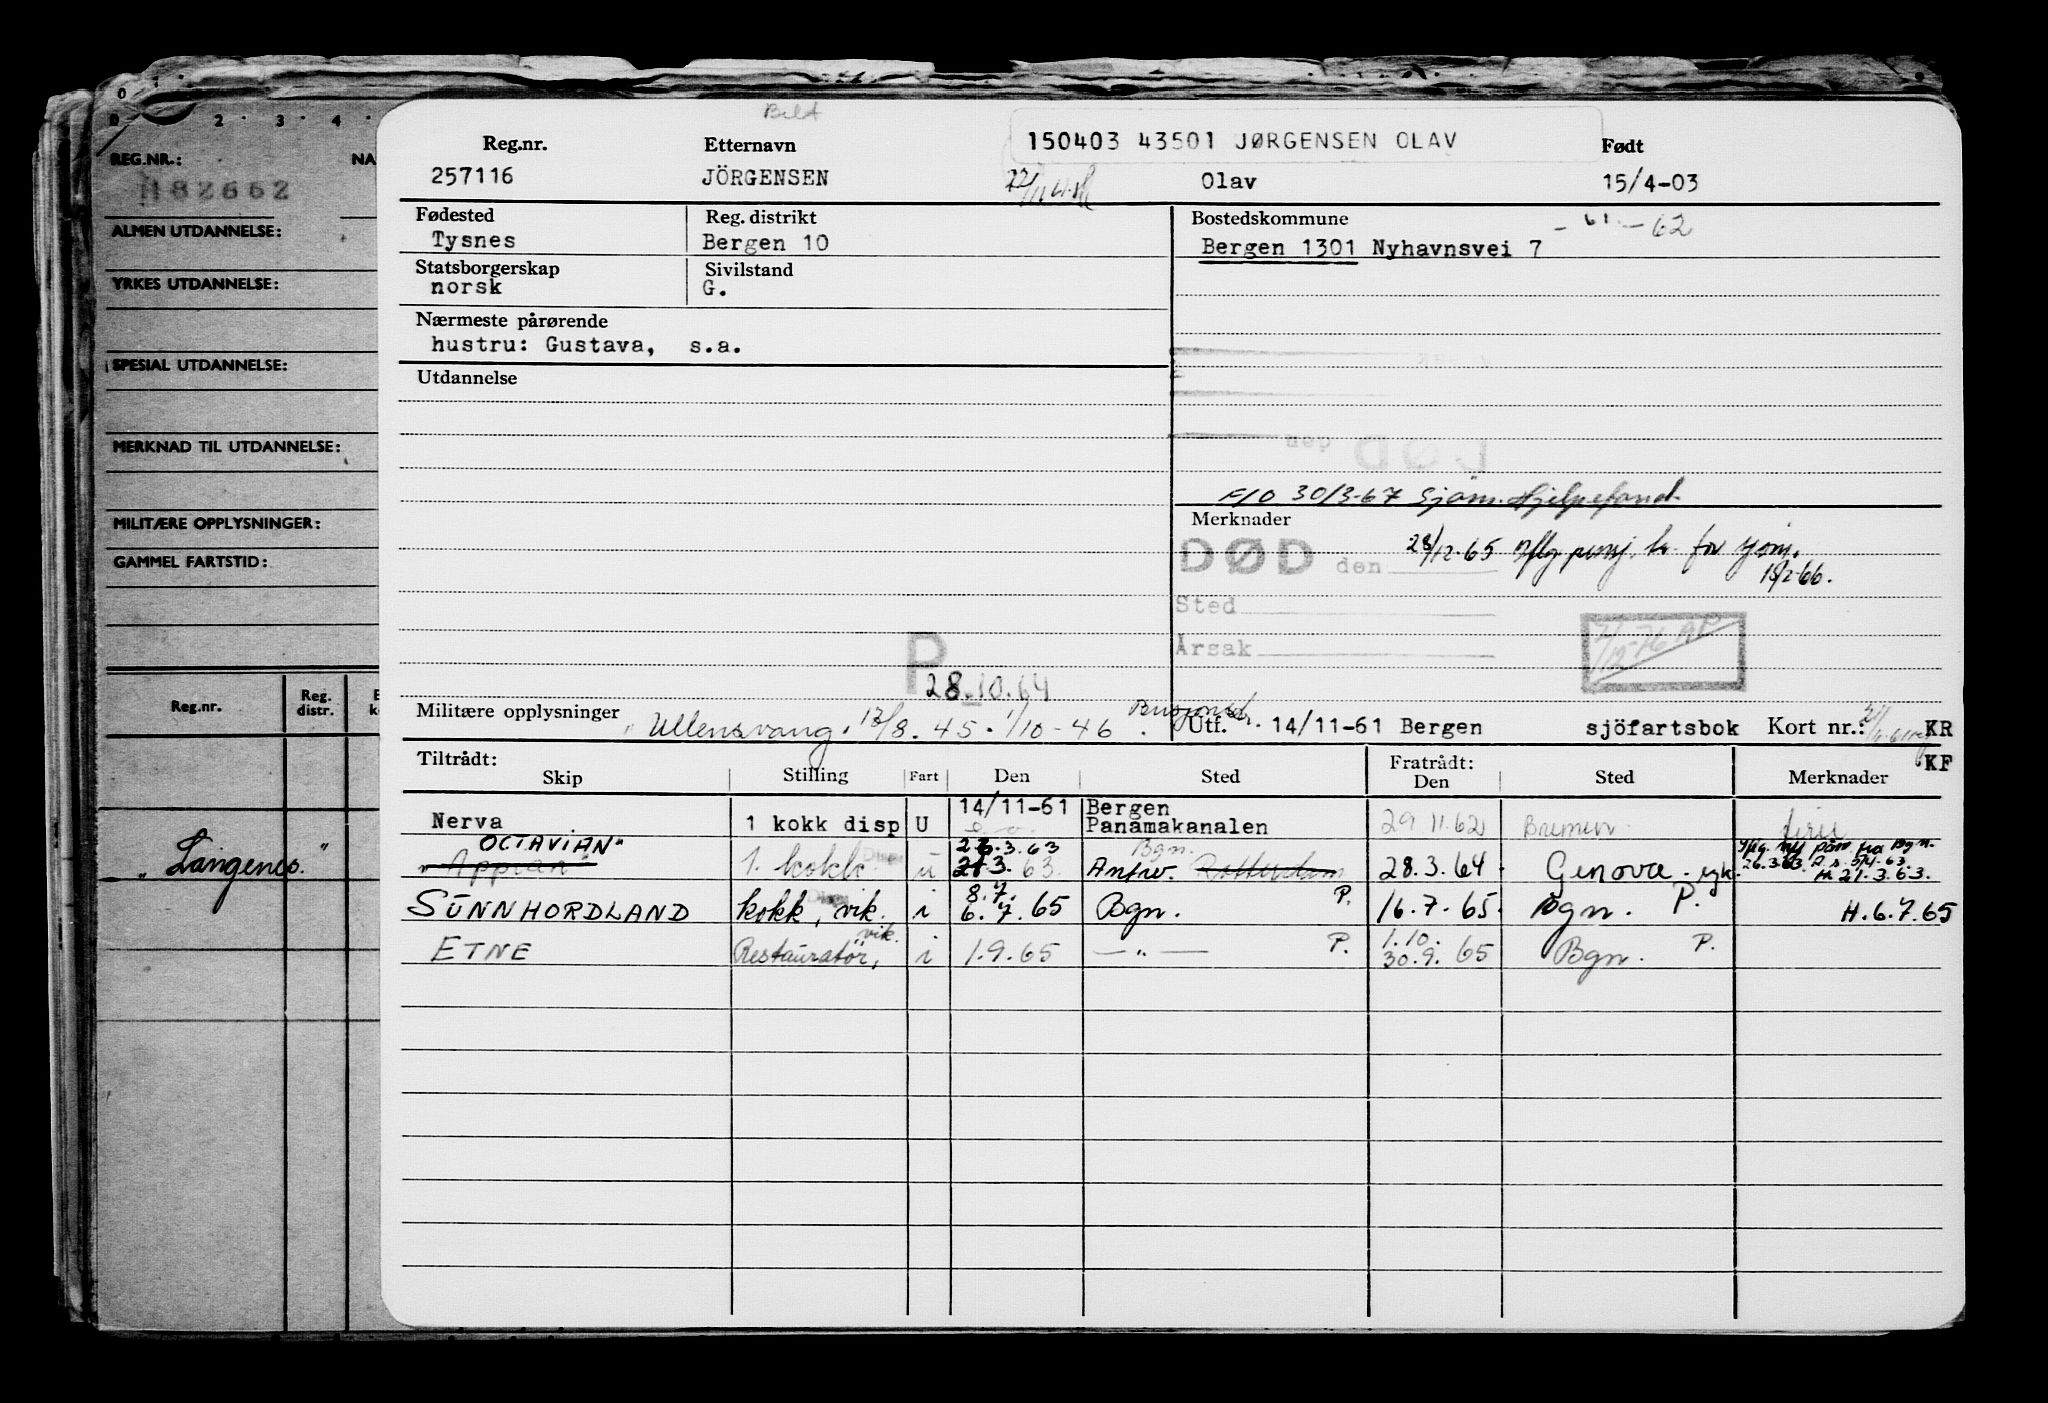 Bilt
REG.NR.: NA
H82662
ALMEN UTDANNELSE:
YRKES UTDANNELSE:
SPESIAL UTDANNELSE:
MERKNAD TIL UTDANNELSE:
MILITÆRE OPPLYSNINGER:
GAMMEL FARTSTID:
Reg.nr. Reg. distr.
„Langenes."
150403 43501 JØRGENSEN OLAV
Reg.nr. Etternavn Født
257116 JÖRGENSEN Olav 15/4-03
Fødested Reg. distrikt Bostedskommune - 61 - 62
Tysnes Bergen 10 Bergen 1301 Nyhavnsvei 7
Statsborgerskap Sivilstand
norsk G.
Nærmeste pårørende
hustru: Gustava, s.a.
Utdannelse
F/O 30/3-67 Sjöm. Hjelpefond.
Merknader
DØD den
28/12-65 for 18/2-66.
Sted
Årsak
2/12-76
P
28.10.64
Militære opplysninger "Ullensvang. 13/8.45 - 1/10-46.
Utf. 14/11-61 Bergen sjöfartsbok Kort nr.: KR
KF
Tiltrådt: Fratrådt:
Skip Stilling Fart Den Sted Den Sted Merknader
Nerva 1 kokk disp U 14/11-61 Bergen Panamakanalen 29 11.62 Bremen
OCTAVIAN" 26.3.63 Bgn.
"Appian" 1. kokk u 21.3.63 Antw. Rotterdam 28.3.64 Genova. syk. 26.3.63 H. 21.3.63.
SUNNHORDLAND kokk, vik. i 8.7. 6.7.65 Bgn. P. 16.7.65 Bgn. P. H.6.7.65
ETNE Restauratör, vik. i 1.9.65 — " — P. 1.10. 30.9.65 Bgn. P.